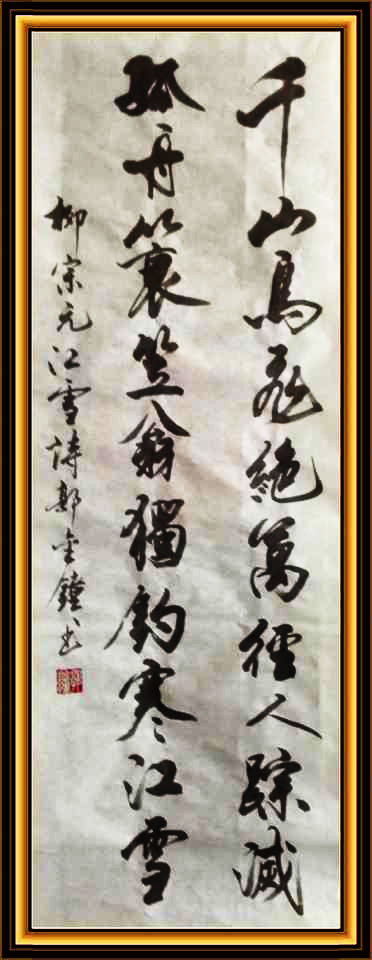 千山鳥飛絕萬徑人踪滅
孤舟簑笠翁獨釣寒江雪
柳宗元江雪詩郭金鐘書